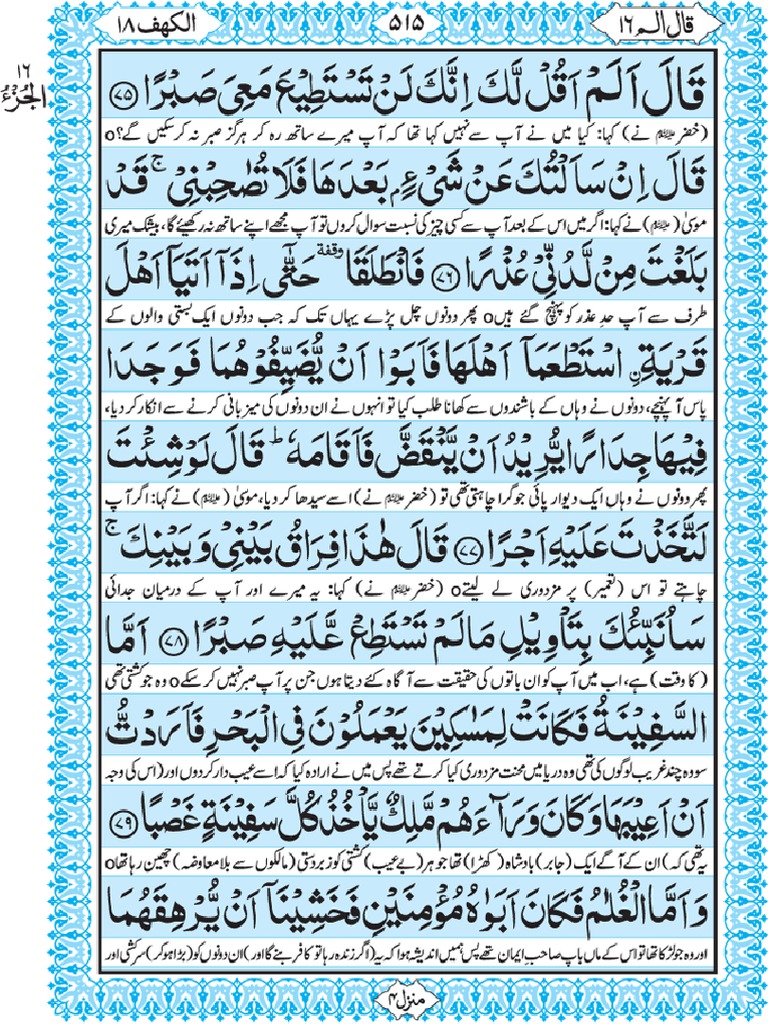 قال الم ١٦
٥١٥
الكهف ١٨
١٦
الجزء
قَالَ اَلَمْ اَقُلْ لَّكَ اِنَّكَ لَنْ تَسْتَطِيْعَ مَعِىَ صَبْرًا ﴿۷۵﴾
(خضر ﷺ نے) کہا: کیا میں نے آپ سے نہیں کہا تھا کہ آپ میرے ساتھ رہ کر ہرگز صبر نہ کرسکیں گے؟o
قَالَ اِنْ سَاَلْتُكَ عَنْ شَىْءٍۭ بَعْدَهَا فَلَا تُصٰحِبْنِىْ ۚ قَدْ
موسیٰ (ﷺ) نے کہا: اگر میں اس کے بعد آپ سے کسی چیز کی نسبت سوال کروں تو آپ مجھے اپنے ساتھ نہ رکھیئے گا، بیشک میری
بَلَغْتَ مِنْ لَّدُنِّىْ عُذْرًا ﴿۷۶﴾ فَانْطَلَقَا ۥ وقفة حَتّٰۤى اِذَاۤ اَتَيَاۤ اَهْلَ
طرف سے آپ حدِ عذر کو پہنچ گئے ہیںo پھر دونوں چل پڑے یہاں تک کہ جب دونوں ایک بستی والوں کے
قَرْيَةِ ࣙاسْتَطْعَمَاۤ اَهْلَهَا فَاَبَوْا اَنْ يُّضَيِّفُوْهُمَا فَوَجَدَا
پاس آ پہنچے، دونوں نے وہاں کے باشندوں سے کھانا طلب کیا تو انہوں نے ان دونوں کی میزبانی کرنے سے انکار کر دیا،
فِيْهَا جِدَارًا يُّرِيْدُ اَنْ يَّنْقَضَّ فَاَقَامَهٗ ؕ قَالَ لَوْ شِئْتَ
پھر دونوں نے وہاں ایک دیوار پائی جو گرا چاہتی تھی تو (خضر ﷺ نے) اسے سیدھا کر دیا، موسیٰ (ﷺ) نے کہا: اگر آپ
لَتَّخَذْتَ عَلَيْهِ اَجْرًا ﴿۷۷﴾ قَالَ هٰذَا فِرَاقُ بَيْنِىْ وَبَيْنِكَ ۚ
چاہتے تو اس (تعمیر) پر مزدوری لے لیتےo (خضر ﷺ نے) کہا: یہ میرے اور آپ کے درمیان جدائی
سَاُنَبِّئُكَ بِتَاْوِيْلِ مَا لَمْ تَسْتَطِعْ عَّلَيْهِ صَبْرًا ﴿۷۸﴾ اَمَّا
(کا وقت) ہے، اب میں آپ کو ان باتوں کی حقیقت سے آگاہ کئے دیتا ہوں جن پر آپ صبر نہیں کر سکےo وہ جو کشتی تھی
السَّفِيْنَةُ فَكَانَتْ لِمَسٰكِيْنَ يَعْمَلُوْنَ فِى الْبَحْرِ فَاَرَدْتُّ
سو وہ چند غریب لوگوں کی تھی وہ دریا میں محنت مزدوری کیا کرتے تھے پس میں نے ارادہ کیا کہ اسے عیب دار کر دوں اور (اس کی وجہ
اَنْ اَعِيْبَهَا وَكَانَ وَرَآءَهُمْ مَّلِكٌ يَّاْخُذُ كُلَّ سَفِيْنَةٍ غَصْبًا ﴿۷۹﴾
یہ تھی کہ) ان کے آگے ایک (جابر) بادشاہ (کھڑا) تھا جو ہر (بے عیب) کشتی کو زبردستی (مالکوں سے بلا معاوضہ) چھین رہا تھاo
وَاَمَّا الْغُلٰمُ فَكَانَ اَبَوٰهُ مُؤْمِنَيْنِ فَخَشِيْنَاۤ اَنْ يُّرْهِقَهُمَا
اور وہ جو لڑکا تھا تو اس کے ماں باپ صاحبِ ایمان تھے پس ہمیں اندیشہ ہوا کہ یہ (اگر زندہ رہا تو کافر بنے گا اور) ان دونوں کو (بڑا ہو کر) سرکشی اور
منزل ۴